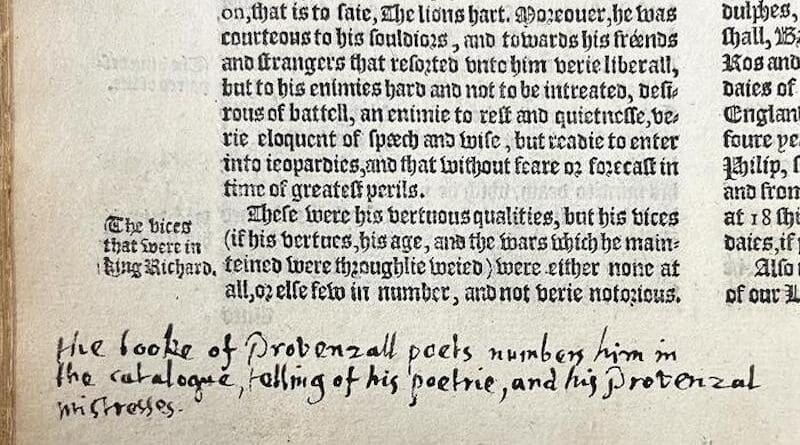 on, that is to saie, The lions hart. Moreouer, he was
courteous to his souldiors, and towards his fréends
and strangers that resorted vnto him verie liberall,
but to his enimies hard and not to be intreated, desi-
rous of battell, an enimie to rest and quietnesse, ve-
rie eloquent of spéech and wise, but readie to enter
into ieopardies, and that without feare or forecast in
time of greatest perils.
These were his vertuous qualities, but his vices
(if his vertues, his age, and the wars which he main-
teined were throughlie weied) were either none at
all, or else few in number, and not verie notorious.
The vices
that were in
king Richard.
dulphes,
shall, Ba
Ros and
daies of
England
foure ye
Philip, s
and from
at 18 shi
daies, if
Also
of our L
the booke of Provenzall poets numbers him in
the catalogue, telling of his poetrie, and his Provenzal
mistresses.